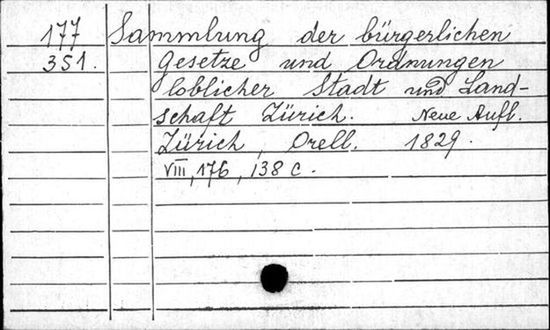 177 Sammlung der bürgerlichen
351. Gesetze und Ordnungen
loblicher Stadt und Land-
schaft Zürich. Neue Aufl.
Zürich, Orell, 1829.
VIII, 176, 138 c.